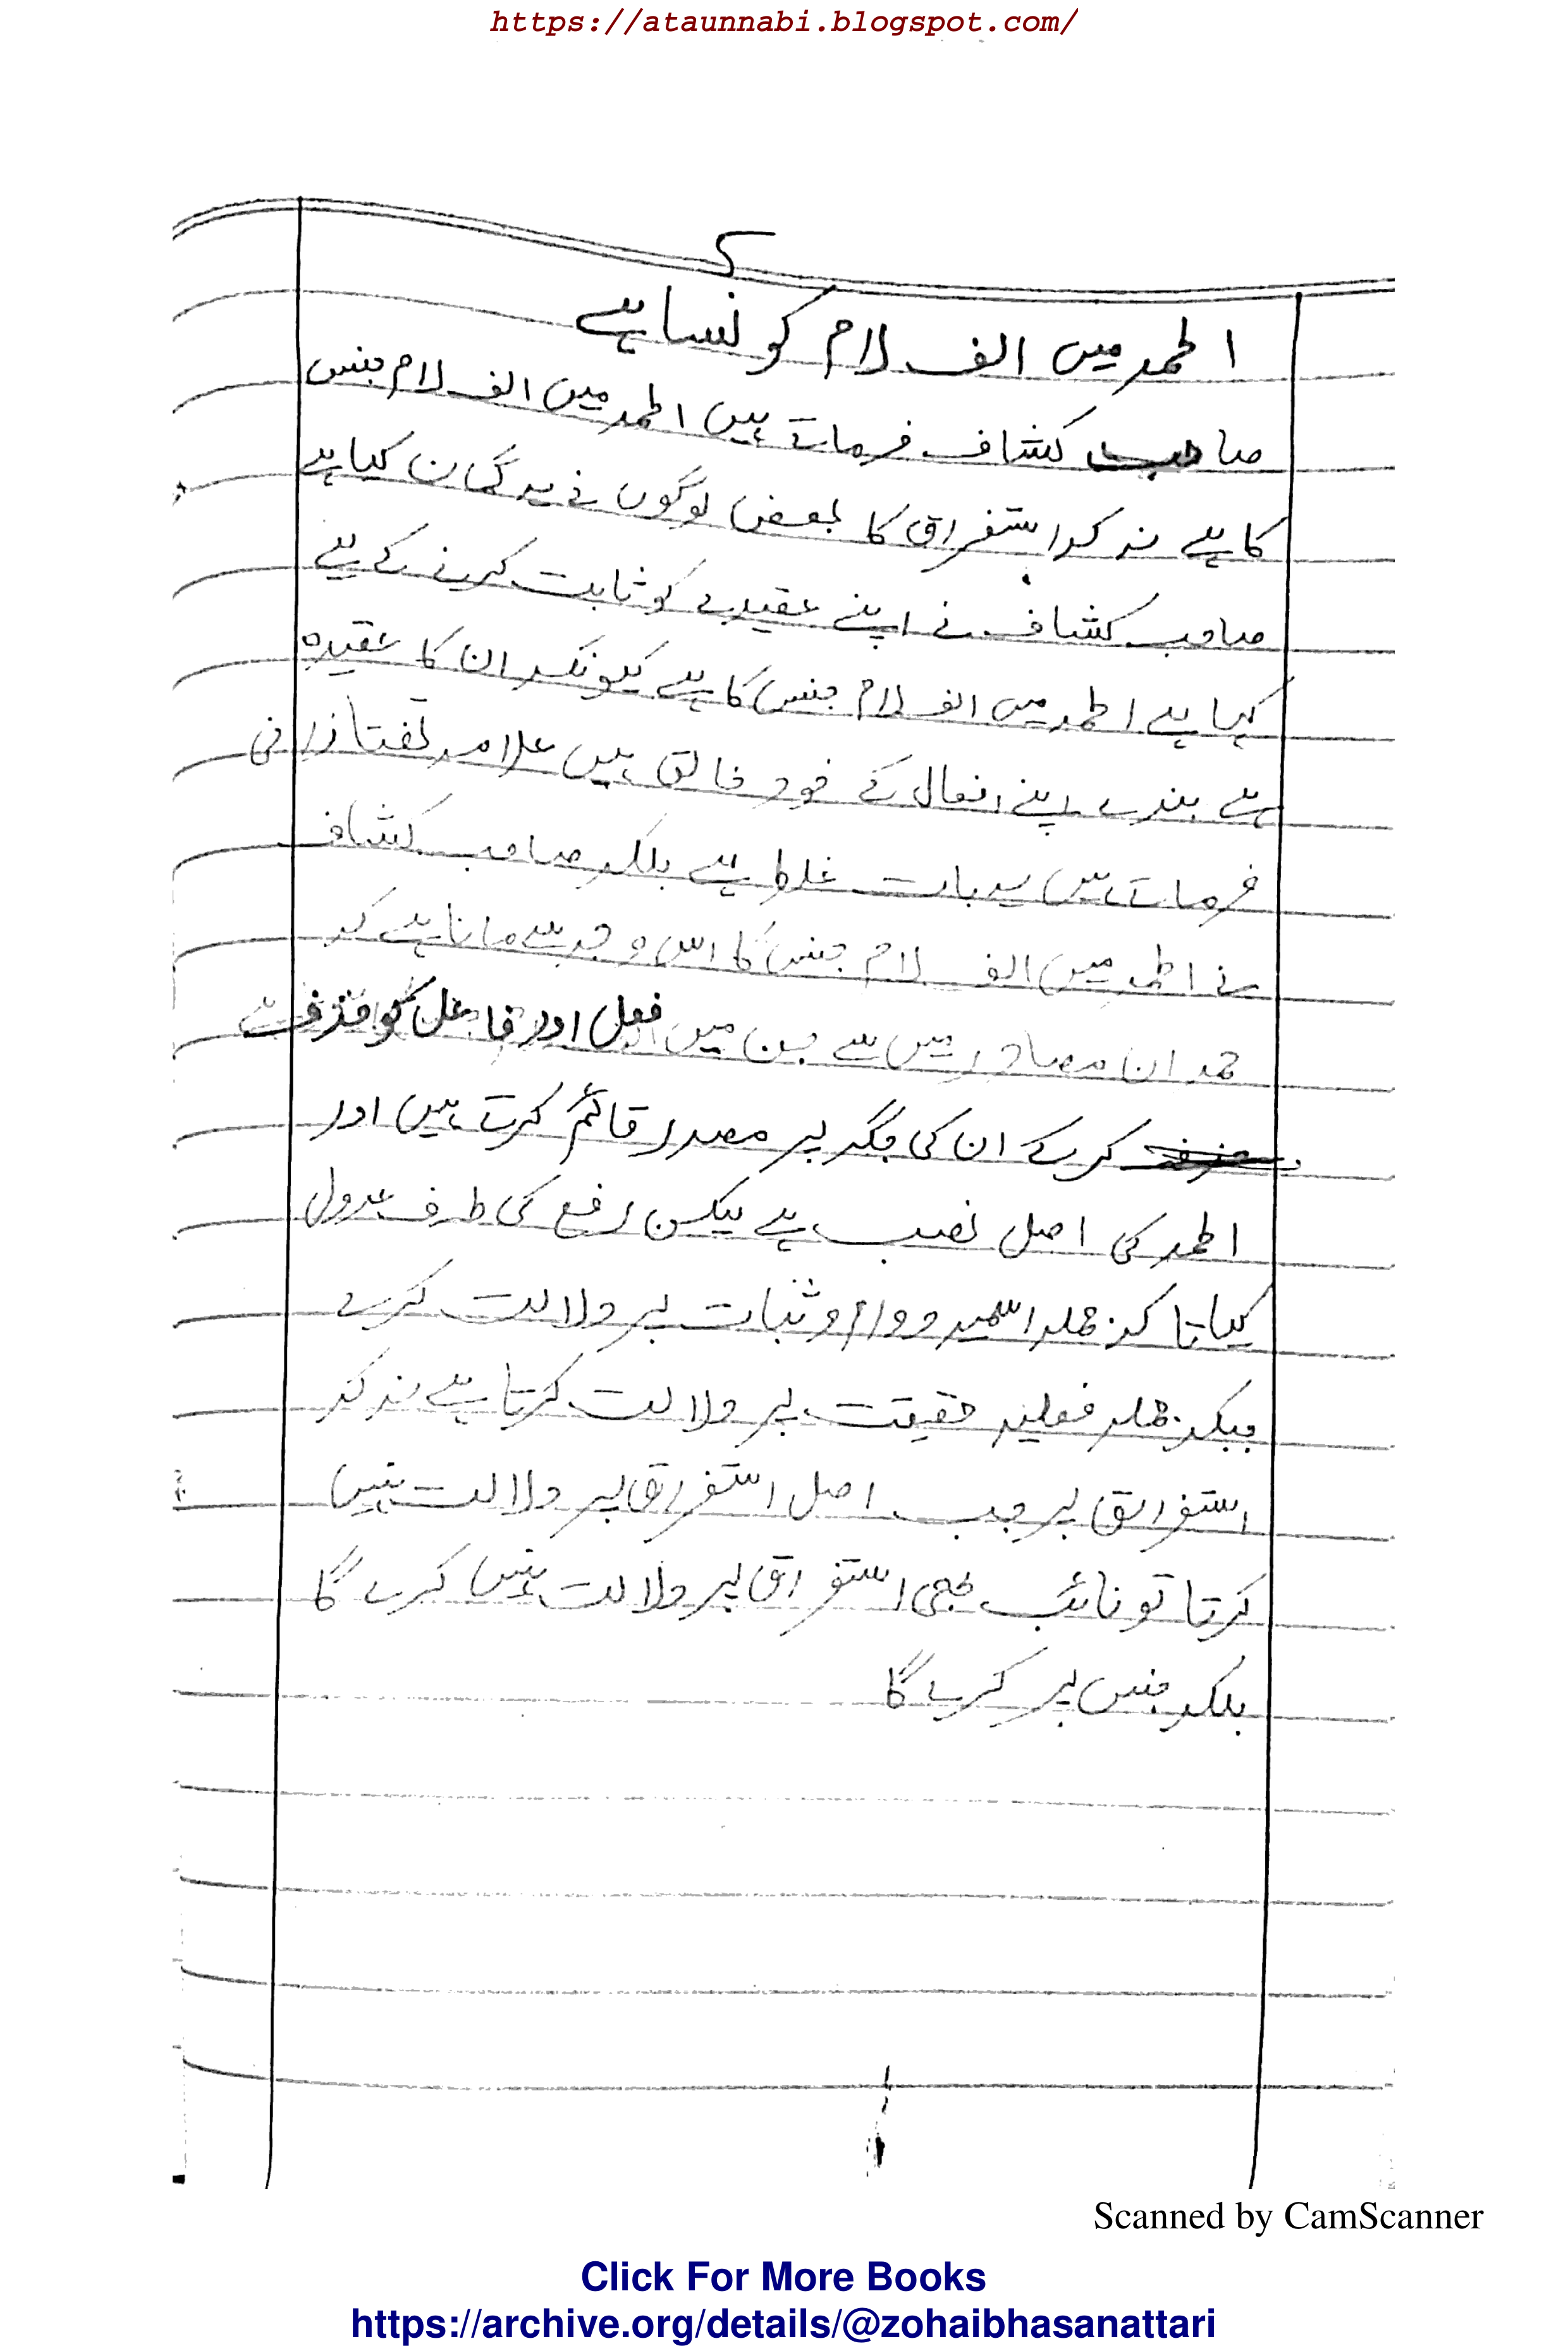 https://ataunnabi.blogspot.com/
الحمد میں الف لام کونسا ہے
صاحب کشاف فرماتے ہیں الحمد میں الف لام جنس
کا ہے نہ کہ استغراق کا بعض لوگوں نے یہ گمان کیا ہے
صاحب کشاف نے اپنے عقیدے کو ثابت کرنے کے لیے
کہا ہے الحمد میں الف لام جنس کا ہے کیونکہ ان کا عقیدہ
ہے بندے اپنے افعال کے خود خالق ہیں علامہ تفتازانی
فرماتے ہیں یہ بات غلط ہے بلکہ صاحب کشاف
نے الحمد میں الف لام جنس کا اس وجہ سے مانا ہے کہ
حمد ان مصادر میں سے جن میں فعل اور فاعل کو حذف
کرکے ان کی جگہ پر مصدر قائم کرتے ہیں اور
الحمد کی اصل نصب ہے لیکن رفع کی طرف عدول
کیا تا کہ جملہ اسمیہ دوام و ثبات پر دلالت کرے
جبکہ جملہ فعلیہ حقیقت پر دلالت کرتا ہے نہ کہ
استغراق پر جب اصل استغراق پر دلالت نہیں
کرتا تو نائب بھی استغراق پر دلالت نہیں کرے گا
بلکہ جنس پر کرے گا
Scanned by CamScanner
Click For More Books
https://archive.org/details/@zohaibhasanattari